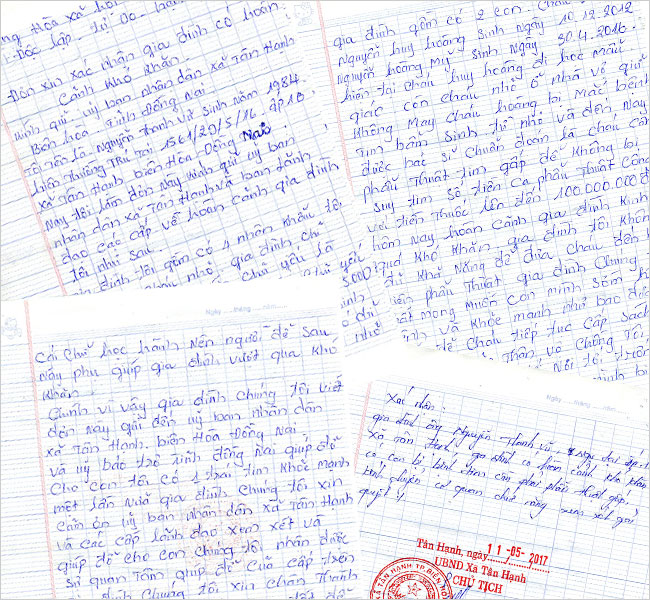 Độc lập - Tự Do -
Đơn xin xác nhận gia đình có hoàn
cảnh khó khăn.
Kính gửi: uỷ ban nhân dân xã Tân Hạnh
Biên hòa - Tỉnh Đồng Nai
Tôi tên là Nguyễn Thanh Vũ Sinh năm 1984.
hiện thường trú tại 1561/20/5/16. ấp 1B,
xã Tân Hạnh biên Hòa - Đồng Nai
Nay tôi làm đơn này kính gửi uỷ ban
nhân dân xã Tân Hạnh và ban lãnh
đạo các cấp về hoàn cảnh gia đình
tôi như sau.
gia đình tôi gồm có 4 nhân khẩu, tôi
gia đình gồm có 2 con. Cháu
Nguyễn huy hoàng Sinh ngày 10.12.2012
Nguyễn hoàng My Sinh ngày 30.4.2016.
hiện tại cháu huy hoàng đi học mẫu
giáo con cháu nhỏ ở nhà vợ giữ
không may cháu hoàng lại mắc bệnh
tim bẩm sinh từ nhỏ và đến nay
được bác sĩ chuẩn đoán là cháu cần
phẩu thuật tim gấp để không bị
suy tim số tiền ca phẩu thuật cộng
với tiền thuốc lên đến 100.000.000 đ
hôm nay hoàn cảnh gia đình kinh
quá khó khăn, gia đình tôi không
đủ khả năng để đưa cháu đến
phẩu thuật gia đình chúng
mong muốn con mình sớm
và khỏe mạnh như bao đứa
để cháu tiếp tục cắp sách
Thân, vợ chồng Tôi
cái chữ học hành nên người để sau
này phụ giúp gia đình vượt qua khó
khăn.
Chính vì vậy gia đình chúng tôi viết
đơn này gửi đến uỷ ban nhân dân
xã Tân Hạnh. biên Hòa Đồng Nai
và uỷ bảo trợ tỉnh đồng Nai giúp đỡ
cho con tôi có 1 trái tim khỏe mạnh
một lần nữa gia đình chúng tôi xin
cảm ơn uỷ ban nhân dân xã Tân Hạnh
và các cấp lãnh đạo xem xét và
giúp đỡ cho con chúng tôi nhận được
sự quan tâm giúp đỡ của cấp trên
đình chúng tôi xin chân thành
Ngày......tháng......năm......
Xác nhận:
gia đình ông Nguyễn Thanh Vũ, ngụ tại ấp 1
xã Tân Hạnh, gia đình có hoàn cảnh khó khăn
có con bị bệnh tim cần phải phẫu thuật gấp.
Kính chuyển cơ quan chức năng xem xét giải
quyết ./
Tân Hạnh, ngày 11-05-2017
UBND Xã Tân Hạnh
CHỦ TỊCH
XÃ TÂN HẠNH TP.BIÊN HÒA